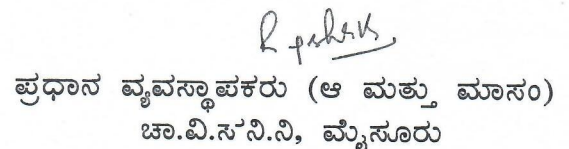 ಪ್ರಧಾನ ವ್ಯವಸ್ಥಾಪಕರು (ಆ ಮತ್ತು ಮಾಸಂ)
ಚಾ.ವಿ.ಸ.ನಿ.ನಿ, ಮೈಸೂರು